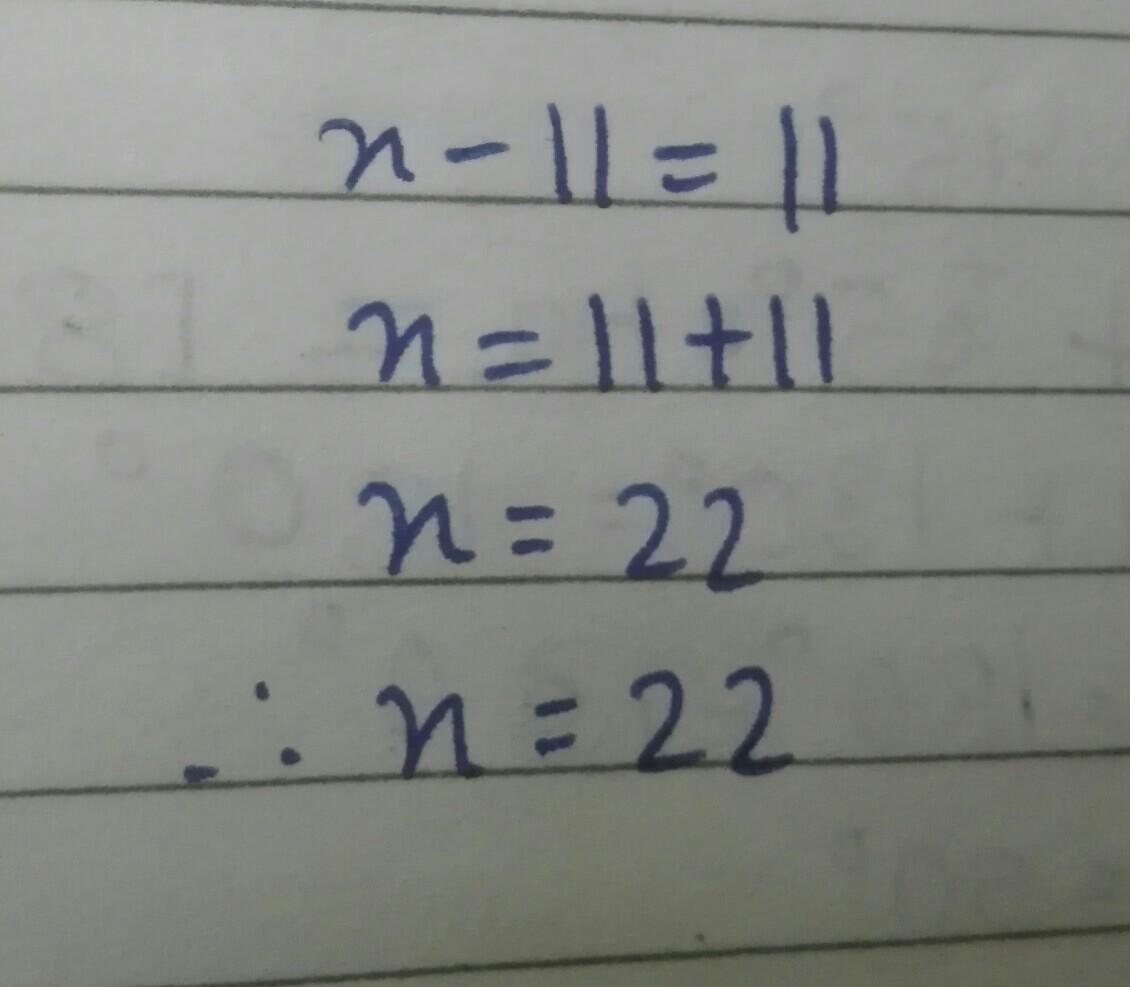 x - 11 = 11
x = 11 + 11
x = 22
∴ x = 22